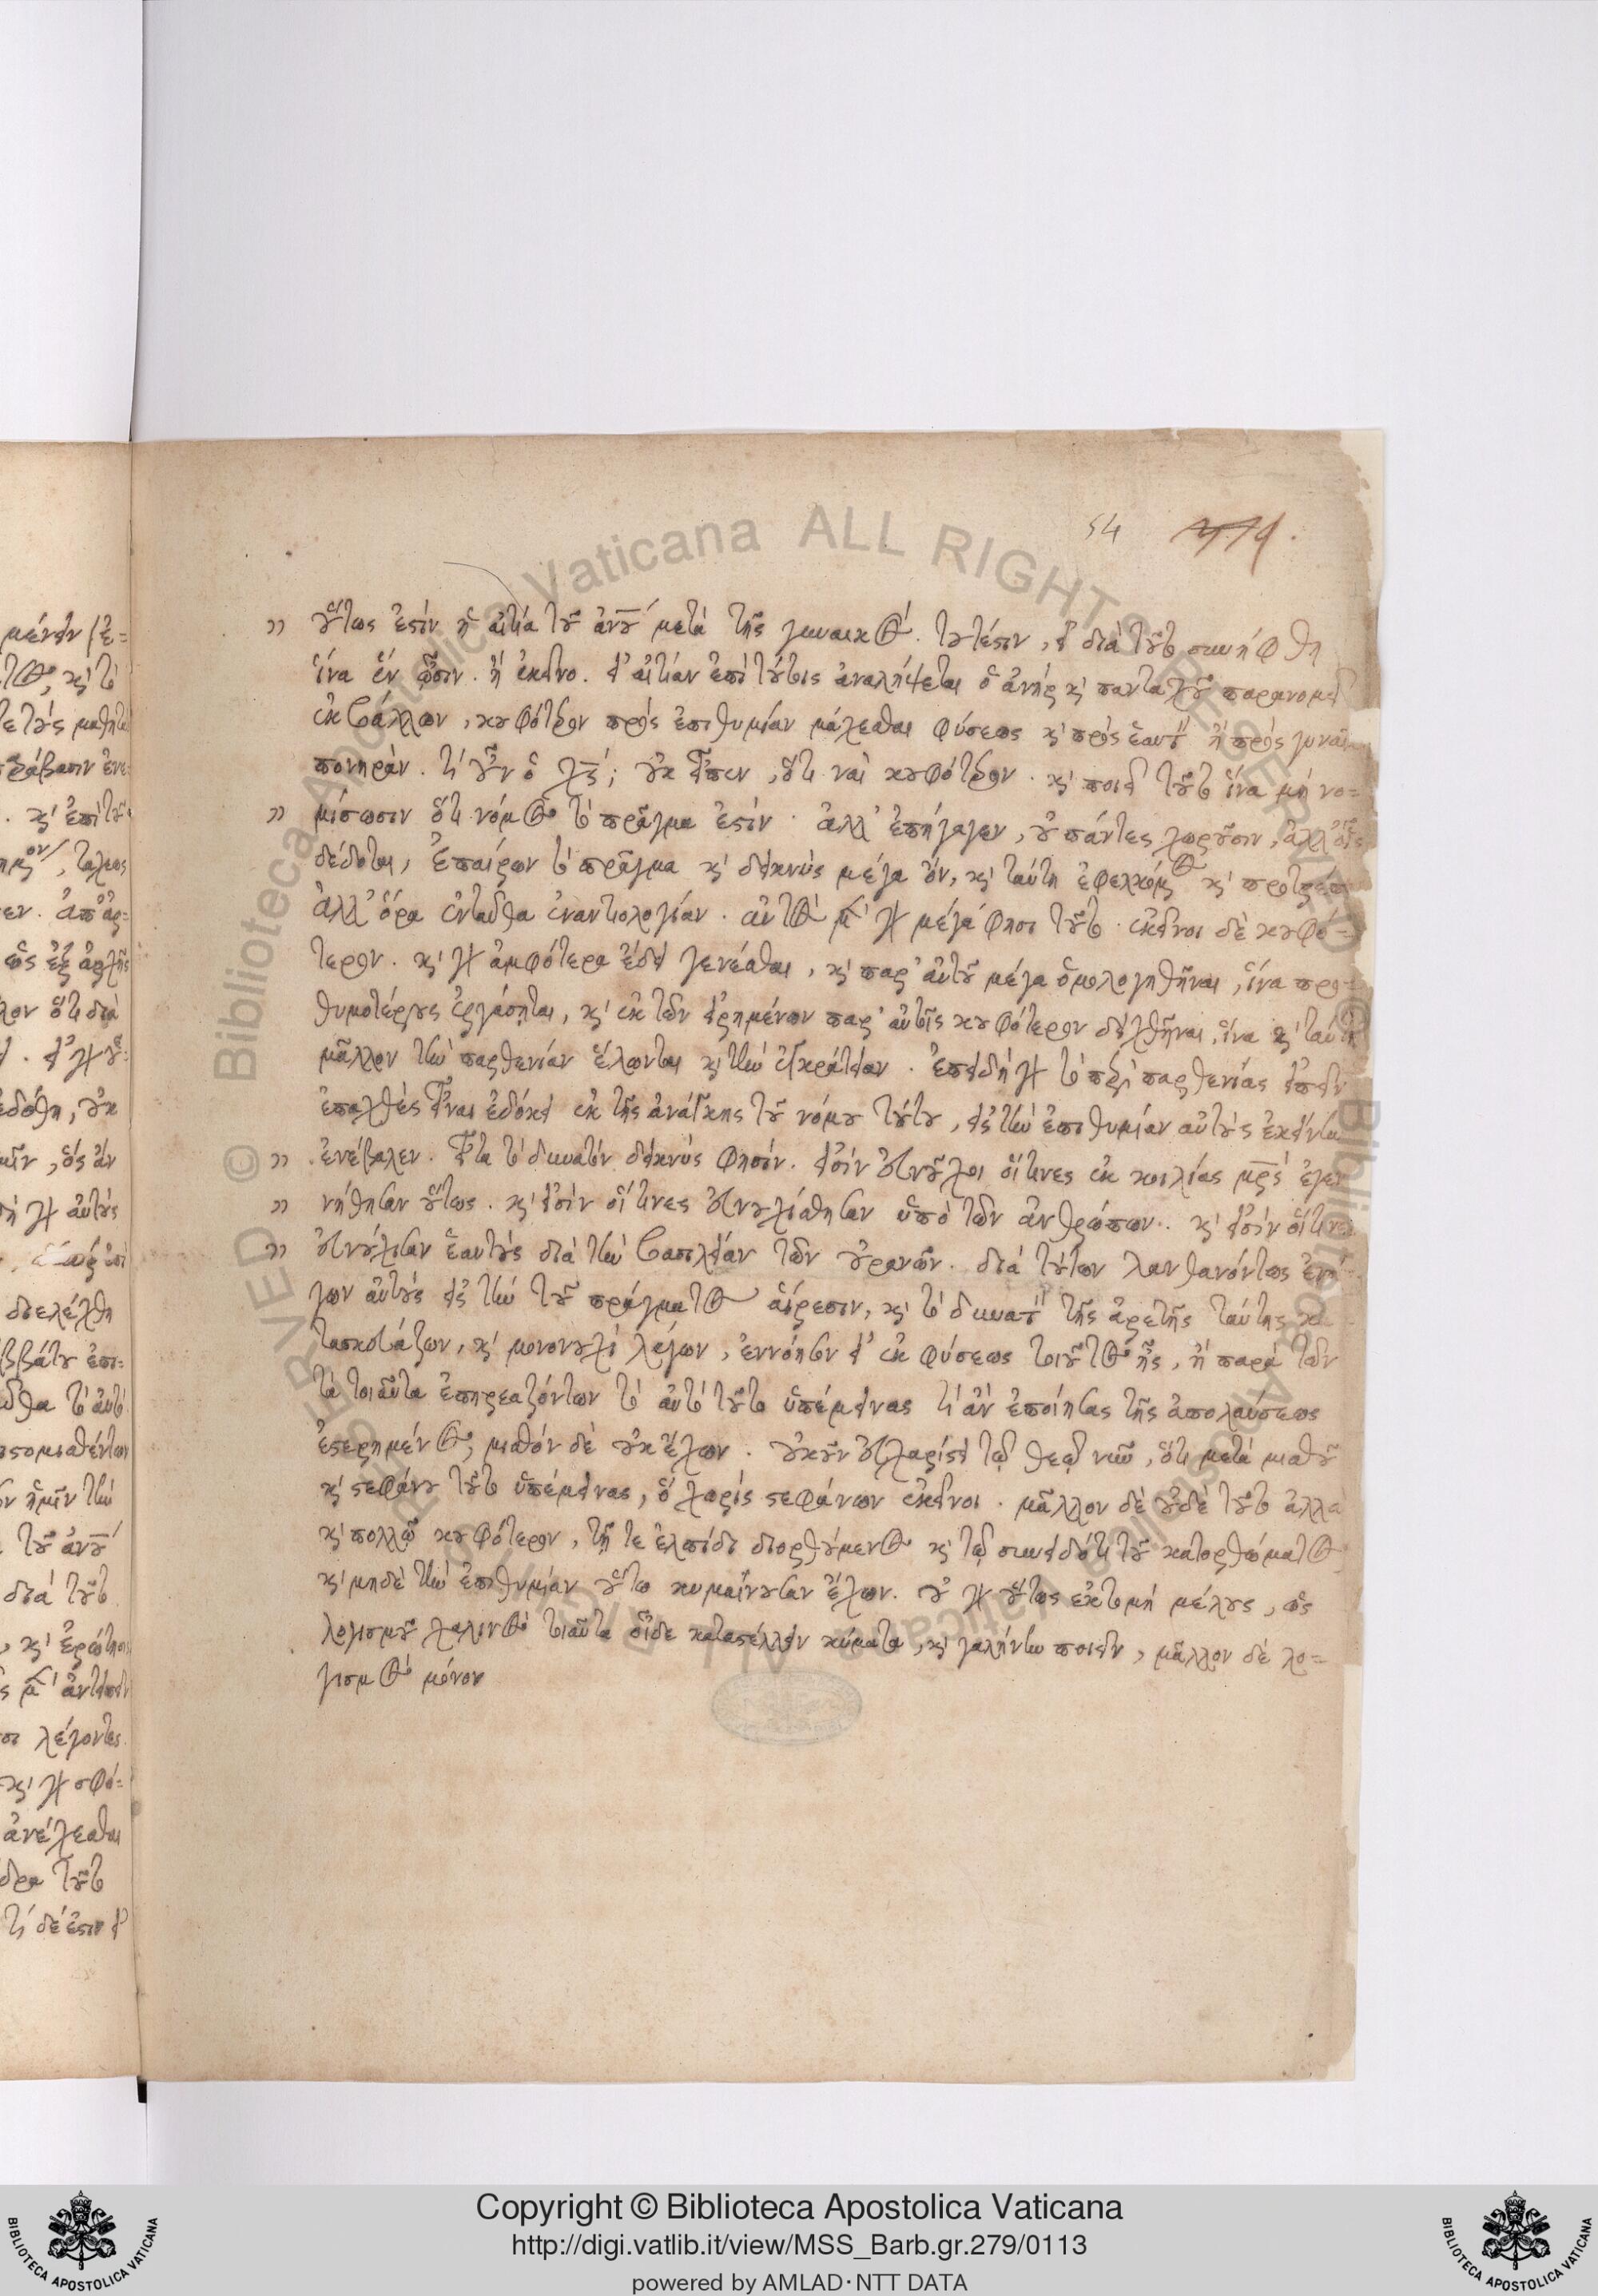 54
οὕτως ἐστὶν ἡ αἰτία τοῦ ἀνου μετὰ τῆς γυναικός. τουτέστιν, εἰ διὰ τοῦτο συνήφθη
ἵνα ἓν ὦσιν. ἢ ἐκεῖνο. εἰ αἰτίαν ἐπὶ τούτοις ἀναλήψεται ὁ ἀνὴρ κ' πανταχοῦ παρανομεῖ
ἐκβάλλων, κουφότερον πρὸς ἐπιθυμίαν μάχεσθαι φύσεως κ' πρὸς ἑαυτὸν ἢ πρὸς γυναῖκα
πονηράν. τί οὖν ὁ χς; οὐκ εἶπεν, ὅτι ναὶ κουφότερον. κ' ποιεῖ τοῦτο ἵνα μὴ νο=
μίσωσιν ὅτι νόμος τὸ πρᾶγμα ἐστίν. ἀλλ' ἐπήγαγεν, οὐ πάντες χωροῦσιν, ἀλλ' οἷς
δέδοται, ἐπαίρων τὸ πρᾶγμα κ' δεικνὺς μέγα ὄν, κ' ταύτῃ ἐφελκόμενος κ' προτρέπων
ἀλλ' ὅρα ἐνταῦθα ἐναντιολογίαν. αὐτὸς μὲν γὰρ μέγα φησὶ τοῦτο. ἐκεῖνοι δὲ κουφό=
τερον. κ' γὰρ ἀμφότερα ἔδει γενέσθαι, κ' παρ' αὐτοῦ μέγα ὁμολογηθῆναι, ἵνα προ=
θυμοτέρους ἐργάσηται, κ' ἐκ τῶν εἰρημένων παρ' αὐτοῖς κουφότερον δειχθῆναι, ἵνα κ' ταύτῃ
μᾶλλον τὴν παρθενίαν ἕλωνται κ' τὴν ἐγκράτειαν. ἐπειδὴ γὰρ τὸ περὶ παρθενίας εἰπεῖν
ἐπαχθὲς εἶναι ἐδόκει ἐκ τῆς ἀνάγκης τοῦ νόμου τούτου, εἰς τὴν ἐπιθυμίαν αὐτοὺς ἐκείνην
ἐνέβαλεν. εἶτα τὸ δυνατὸν δεικνὺς φησίν. εἰσὶν εὐνοῦχοι οἵτινες ἐκ κοιλίας μρς ἐγεν
νήθησαν οὕτως. κ' εἰσὶν οἵτινες εὐνουχίσθησαν ὑπὸ τῶν ἀνθρώπων. κ' εἰσὶν οἵτινες
εὐνούχισαν ἑαυτοὺς διὰ τὴν βασιλείαν τῶν οὐρανῶν. διὰ τούτων λανθανόντως ἐνά
γων αὐτοὺς εἰς τὴν τοῦ πράγματος αἵρεσιν, κ' τὸ δυνατὸν τῆς ἀρετῆς ταύτης κα
τασκευάζων, κ' μονονουχὶ λέγων, ἐννόησον εἰ ἐκ φύσεως τοιοῦτος ἦς, ἢ παρὰ τῶν
τὰ τοιαῦτα ἐπηρεαζόντων τὸ αὐτὸ τοῦτο ὑπέμεινας τί ἂν ἐποίησας τῆς ἀπολαύσεως
ἐστερημένος, μισθὸν δὲ οὐκ ἔχων. οὐκοῦν εὐχαρίστει τῷ θεῷ νῦν, ὅτι μετὰ μισθοῦ
κ' στεφάνου τοῦτο ὑπέμεινας, ὃ χωρὶς στεφάνων ἐκεῖνοι. μᾶλλον δὲ οὐδὲ τοῦτο ἀλλὰ
κ' πολλῷ κουφότερον, τῇ τε ἐλπίδι διορθούμενος κ' τῷ συνειδότι τοῦ κατορθώματος
κ' μηδὲ τὴν ἐπιθυμίαν οὕτω κυμαίνουσαν ἔχων. οὐ γὰρ οὕτως ἐκτομὴ μέλους, ὡς
λογισμοῦ χαλινὸς τοιαῦτα οἶδε καταστέλλειν κύματα, κ' γαλήνην ποιεῖν, μᾶλλον δὲ λο=
γισμὸς μόνον
Copyright © Biblioteca Apostolica Vaticana
http://digi.vatlib.it/view/MSS_Barb.gr.279/0113
powered by AMLAD·NTT DATA
BIBLIOTECA APOSTOLICA VATICANA
BIBLIOTECA APOSTOLICA VATICANA